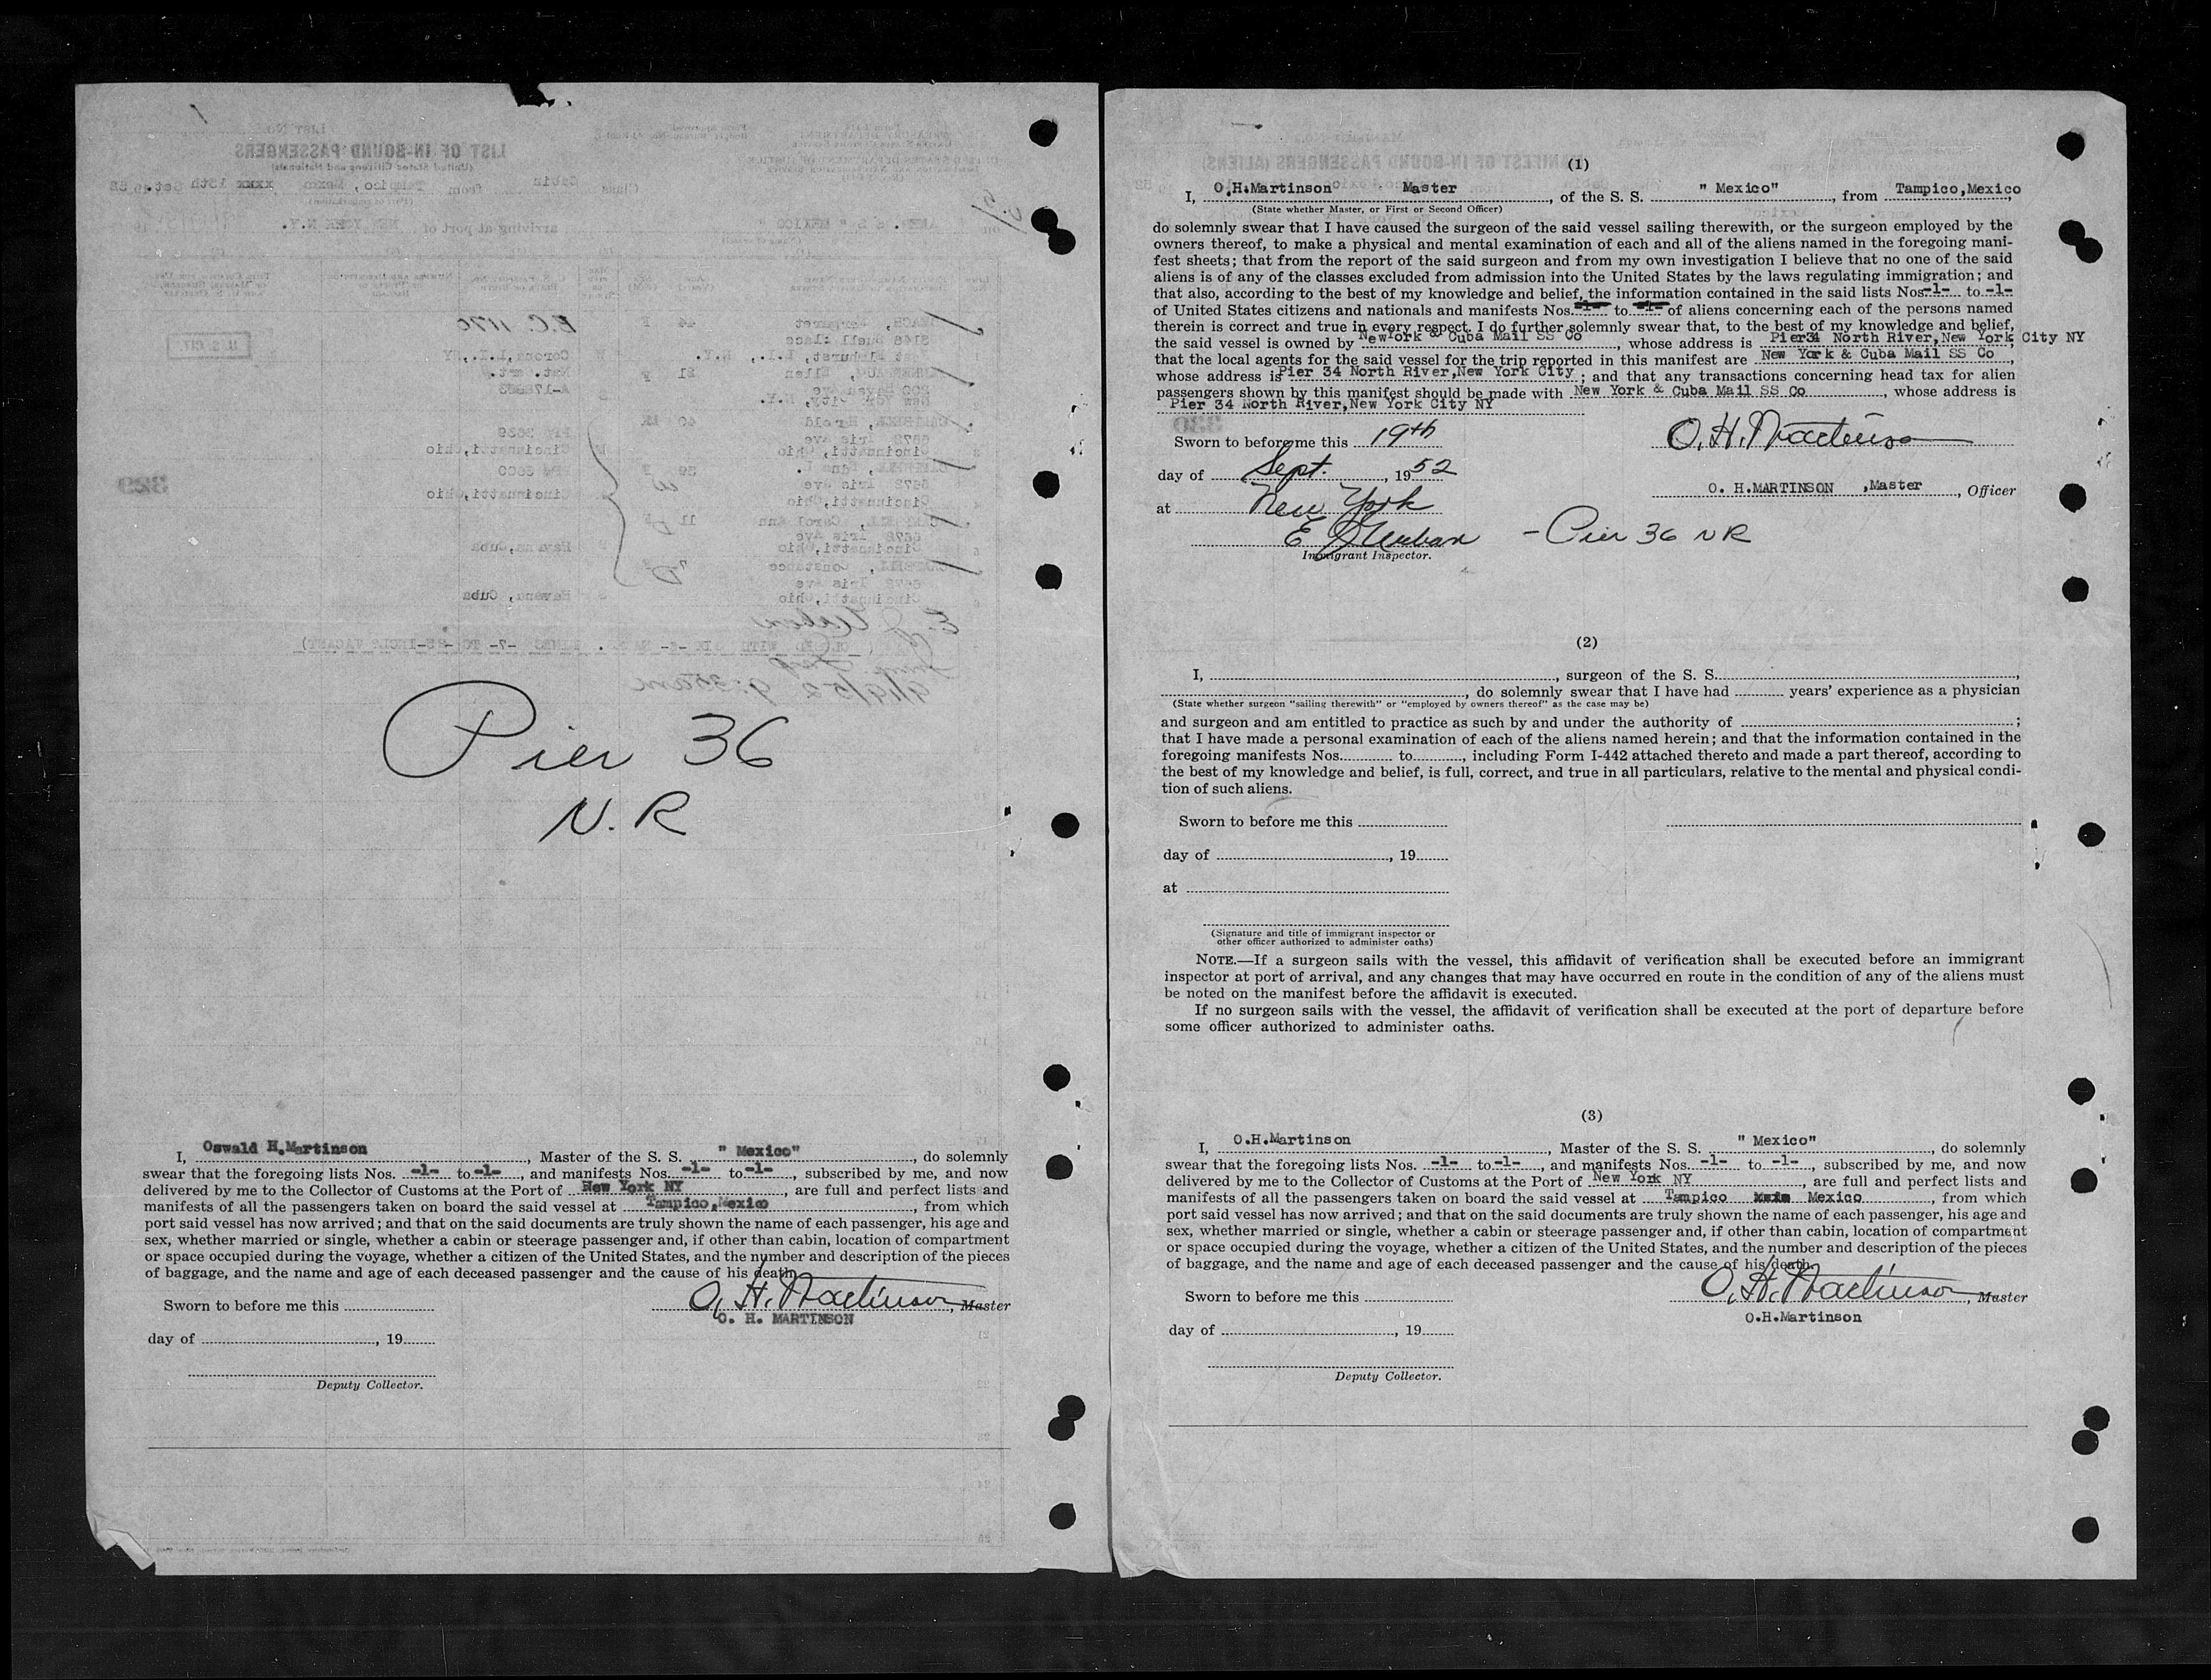 Pier 36
N. R
I, Oswald H.Martinson, Master of the S. S. " Mexico", do solemnly
swear that the foregoing lists Nos. -1- to -1-, and manifests Nos. -1- to -1-, subscribed by me, and now
delivered by me to the Collector of Customs at the Port of New York NY, are full and perfect lists and
manifests of all the passengers taken on board the said vessel at Tampico,Mexico, from which
port said vessel has now arrived; and that on the said documents are truly shown the name of each passenger, his age and
sex, whether married or single, whether a cabin or steerage passenger and, if other than cabin, location of compartment
or space occupied during the voyage, whether a citizen of the United States, and the number and description of the pieces
of baggage, and the name and age of each deceased passenger and the cause of his death.
Sworn to before me this
O. H. Martinson, Master
O. H. MARTINSON
day of , 19
Deputy Collector.
(1)
I, O.H.Martinson Master, of the S. S. " Mexico", from Tampico,Mexico,
(State whether Master, or First or Second Officer)
do solemnly swear that I have caused the surgeon of the said vessel sailing therewith, or the surgeon employed by the
owners thereof, to make a physical and mental examination of each and all of the aliens named in the foregoing mani-
fest sheets; that from the report of the said surgeon and from my own investigation I believe that no one of the said
aliens is of any of the classes excluded from admission into the United States by the laws regulating immigration; and
that also, according to the best of my knowledge and belief, the information contained in the said lists Nos. -1- to -1-
of United States citizens and nationals and manifests Nos. -1- to -1- of aliens concerning each of the persons named
therein is correct and true in every respect. I do further solemnly swear that, to the best of my knowledge and belief,
the said vessel is owned by NewYork & Cuba Mail SS Co, whose address is Pier34 North River,New York City NY
that the local agents for the said vessel for the trip reported in this manifest are New York & Cuba Mail SS Co,
whose address is Pier 34 North River,New York City; and that any transactions concerning head tax for alien
passengers shown by this manifest should be made with New York & Cuba Mail SS Co, whose address is
Pier 34 North River,New York City NY
Sworn to before me this 19th
O. H. Martinson
day of Sept., 1952
O. H.MARTINSON ,Master, Officer
at New York
- Pier 36 NR
Immigrant Inspector.
(2)
I, , surgeon of the S. S. ,
, do solemnly swear that I have had years' experience as a physician
(State whether surgeon "sailing therewith" or "employed by owners thereof" as the case may be)
and surgeon and am entitled to practice as such by and under the authority of ;
that I have made a personal examination of each of the aliens named herein; and that the information contained in the
foregoing manifests Nos. to , including Form I-442 attached thereto and made a part thereof, according to
the best of my knowledge and belief, is full, correct, and true in all particulars, relative to the mental and physical condi-
tion of such aliens.
Sworn to before me this
day of , 19
at
(Signature and title of immigrant inspector or
other officer authorized to administer oaths)
NOTE.—If a surgeon sails with the vessel, this affidavit of verification shall be executed before an immigrant
inspector at port of arrival, and any changes that may have occurred en route in the condition of any of the aliens must
be noted on the manifest before the affidavit is executed.
If no surgeon sails with the vessel, the affidavit of verification shall be executed at the port of departure before
some officer authorized to administer oaths.
(3)
I, O.H.Martinson, Master of the S. S. " Mexico", do solemnly
swear that the foregoing lists Nos. -1- to -1-, and manifests Nos. -1- to -1-, subscribed by me, and now
delivered by me to the Collector of Customs at the Port of New York NY, are full and perfect lists and
manifests of all the passengers taken on board the said vessel at Tampico Mexico, from which
port said vessel has now arrived; and that on the said documents are truly shown the name of each passenger, his age and
sex, whether married or single, whether a cabin or steerage passenger and, if other than cabin, location of compartment
or space occupied during the voyage, whether a citizen of the United States, and the number and description of the pieces
of baggage, and the name and age of each deceased passenger and the cause of his death.
Sworn to before me this
O. H. Martinson, Master
O.H.Martinson
day of , 19
Deputy Collector.